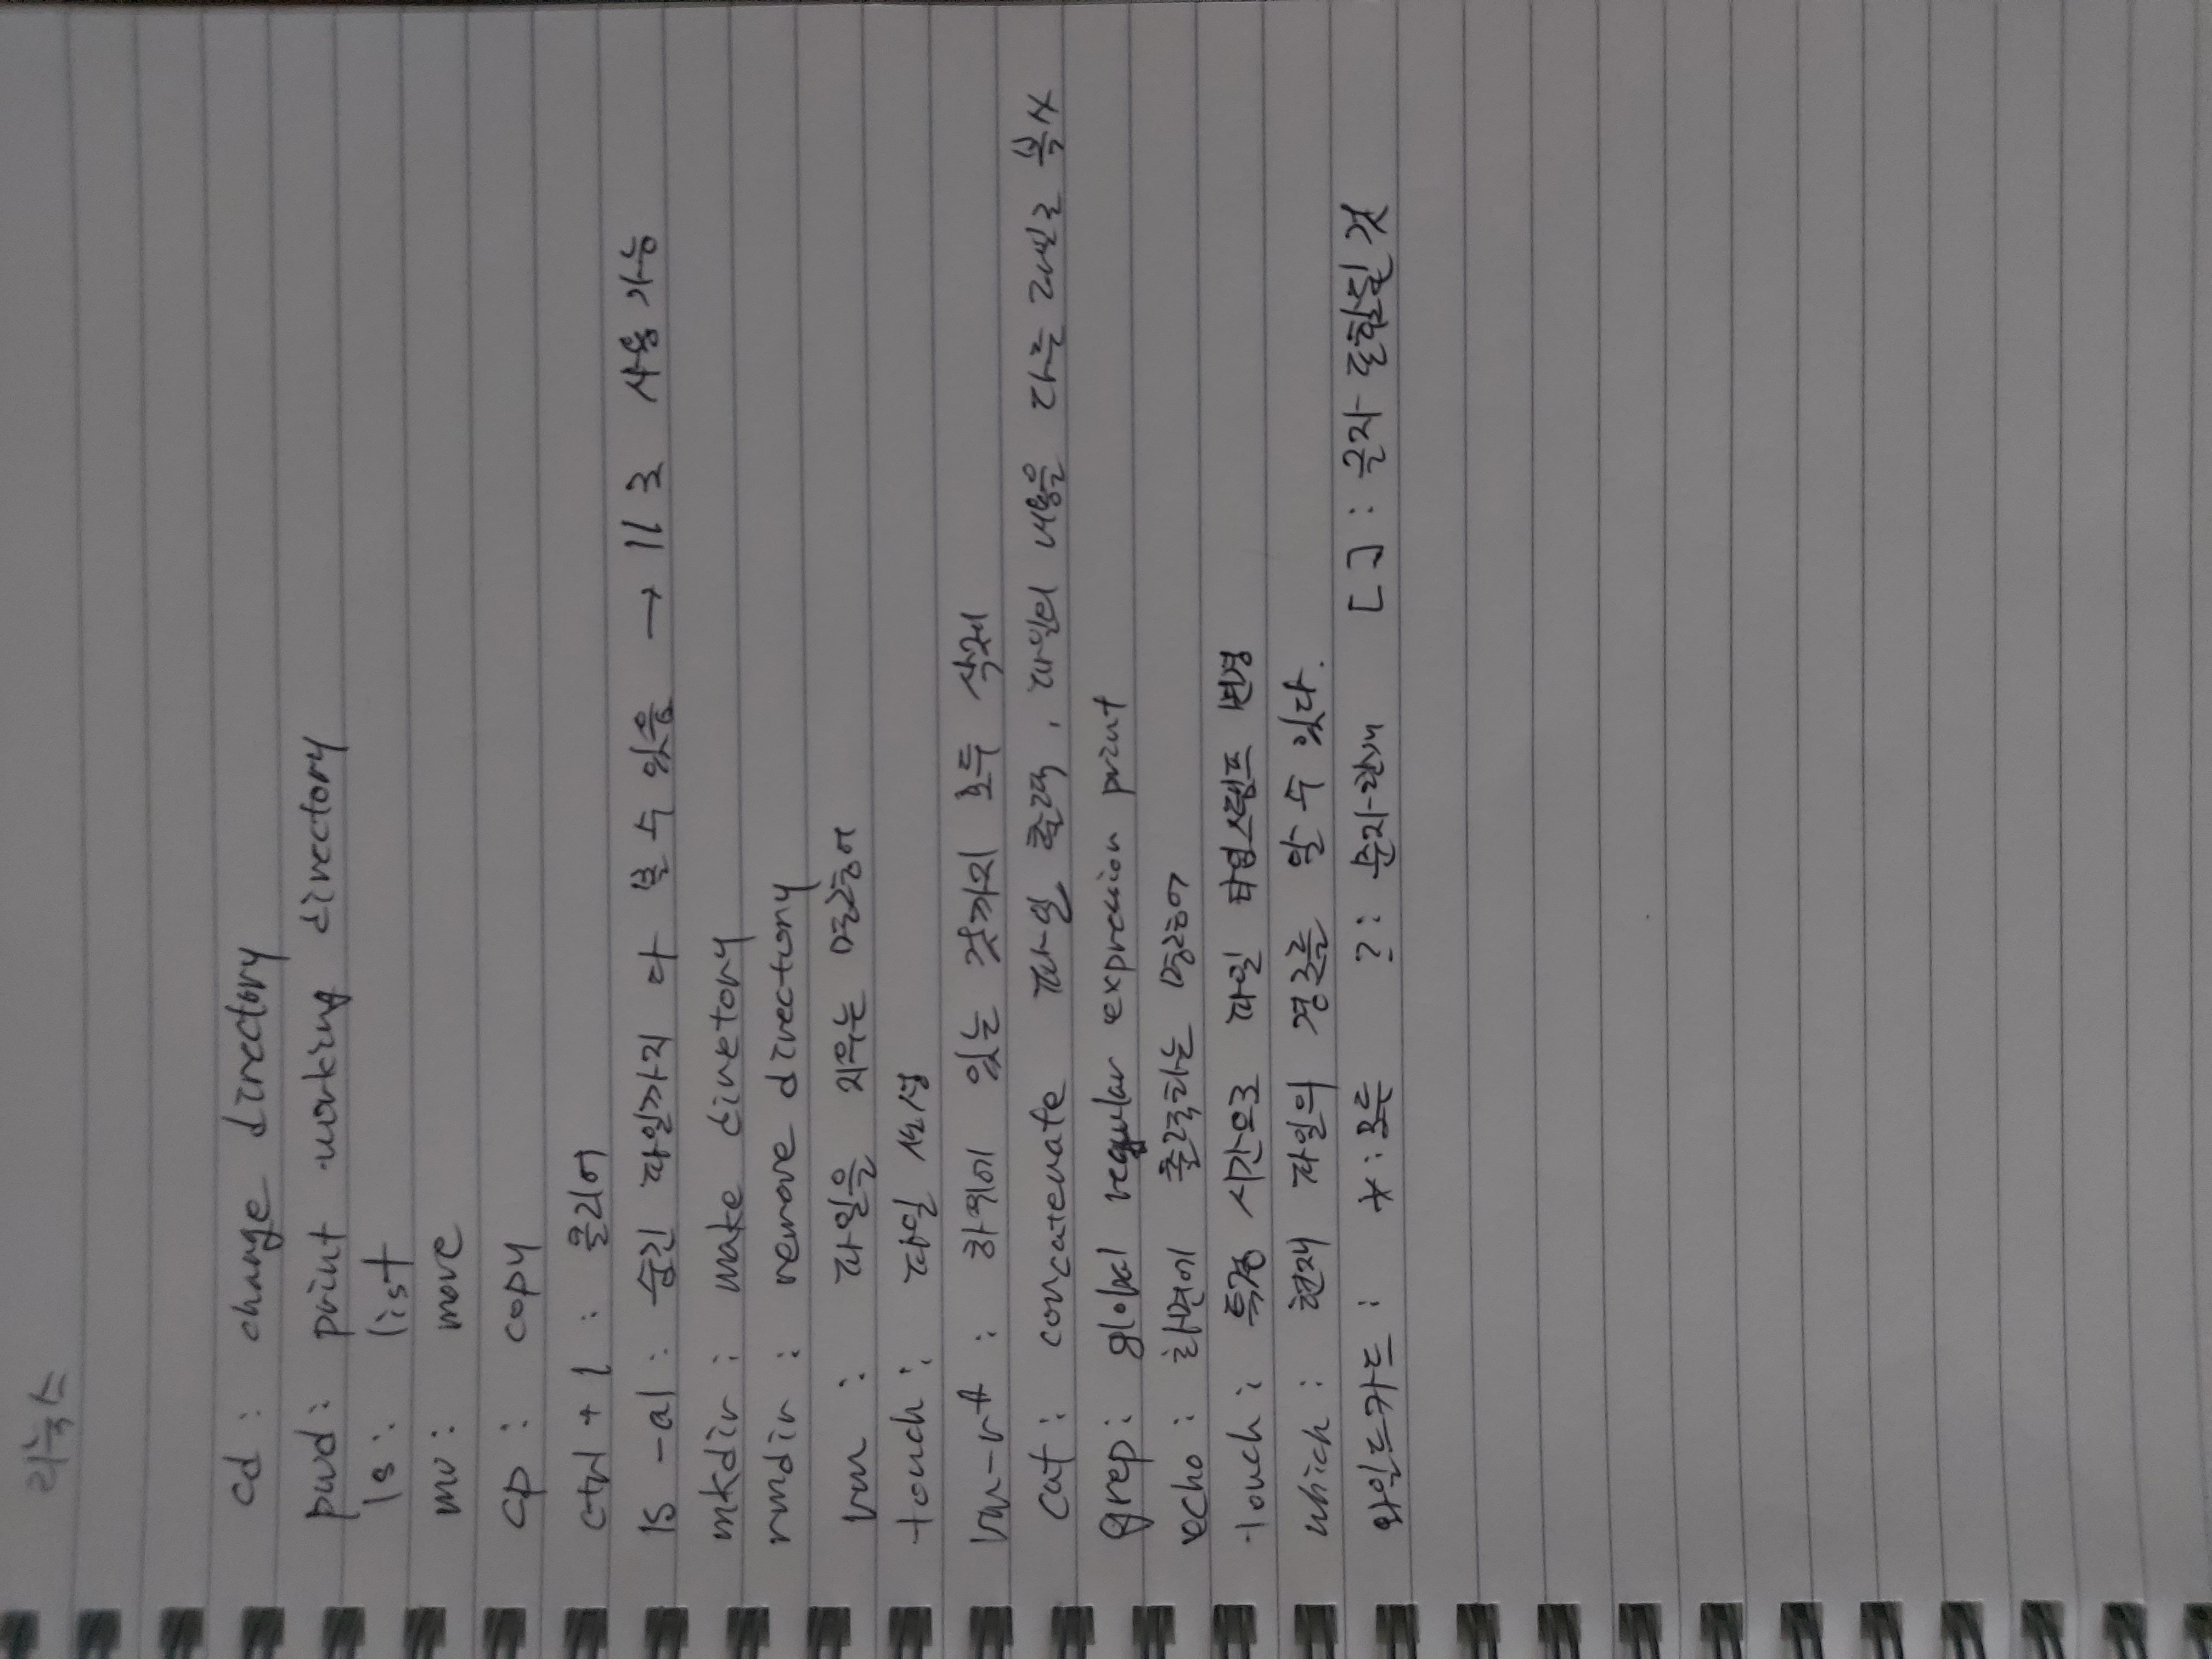 리눅스
cd : change directory
pwd : print working directory
ls : list
mv : move
cp : copy
ctrl + l :클리어
ls -al :숨긴 파일까지 다 볼 수 있음 → ll 로 사용 가능
mkdir : make diretory
rmdir : remove directory
rm : 파일을 지우는 명령어
touch : 파일 생성
rm-rf : 하위에 있는 것까지 모두 삭제
cat : concatenate 파일 출력, 파일의 내용을 다른 파일로 복사
grep : global regular expression print
echo : 화면에 출력하는 명령어
touch : 특정 시간으로 파일 타임스탬프 변경
which : 현재 파일의 경로를 알 수 있다.
와일드카드 : * : 모두 ? : 문자한개 [ ] : 글자 포함될 것